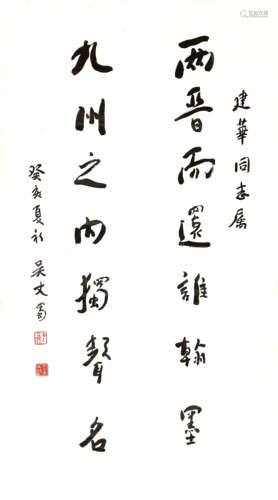 建華同志屬
兩晉而還誰翰墨
九州之内獨聲名
癸亥夏初 吴丈蜀